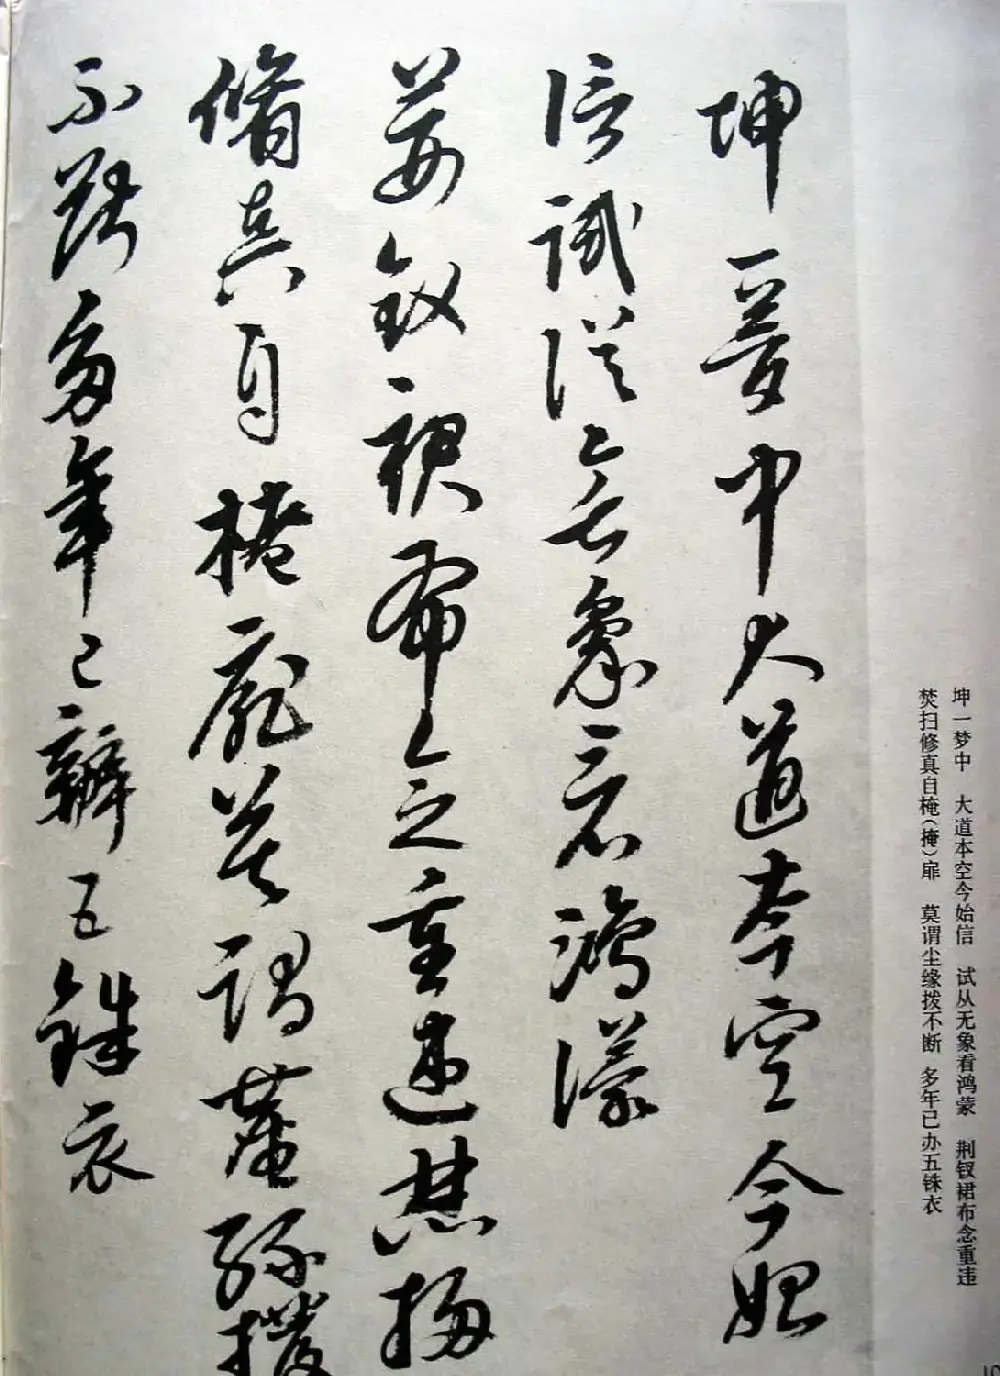 坤一夢中大道本空今始
信試從無象看鴻濛
荆釵裙布念重違焚掃
脩真自掩扉莫謂塵緣撥
不斷多年已辦五銖衣
坤一梦中　大道本空今始信　试从无象看鸿蒙　荆钗裙布念重违
焚扫修真自掩（掩）扉　莫谓尘缘拨不断　多年已办五铢衣